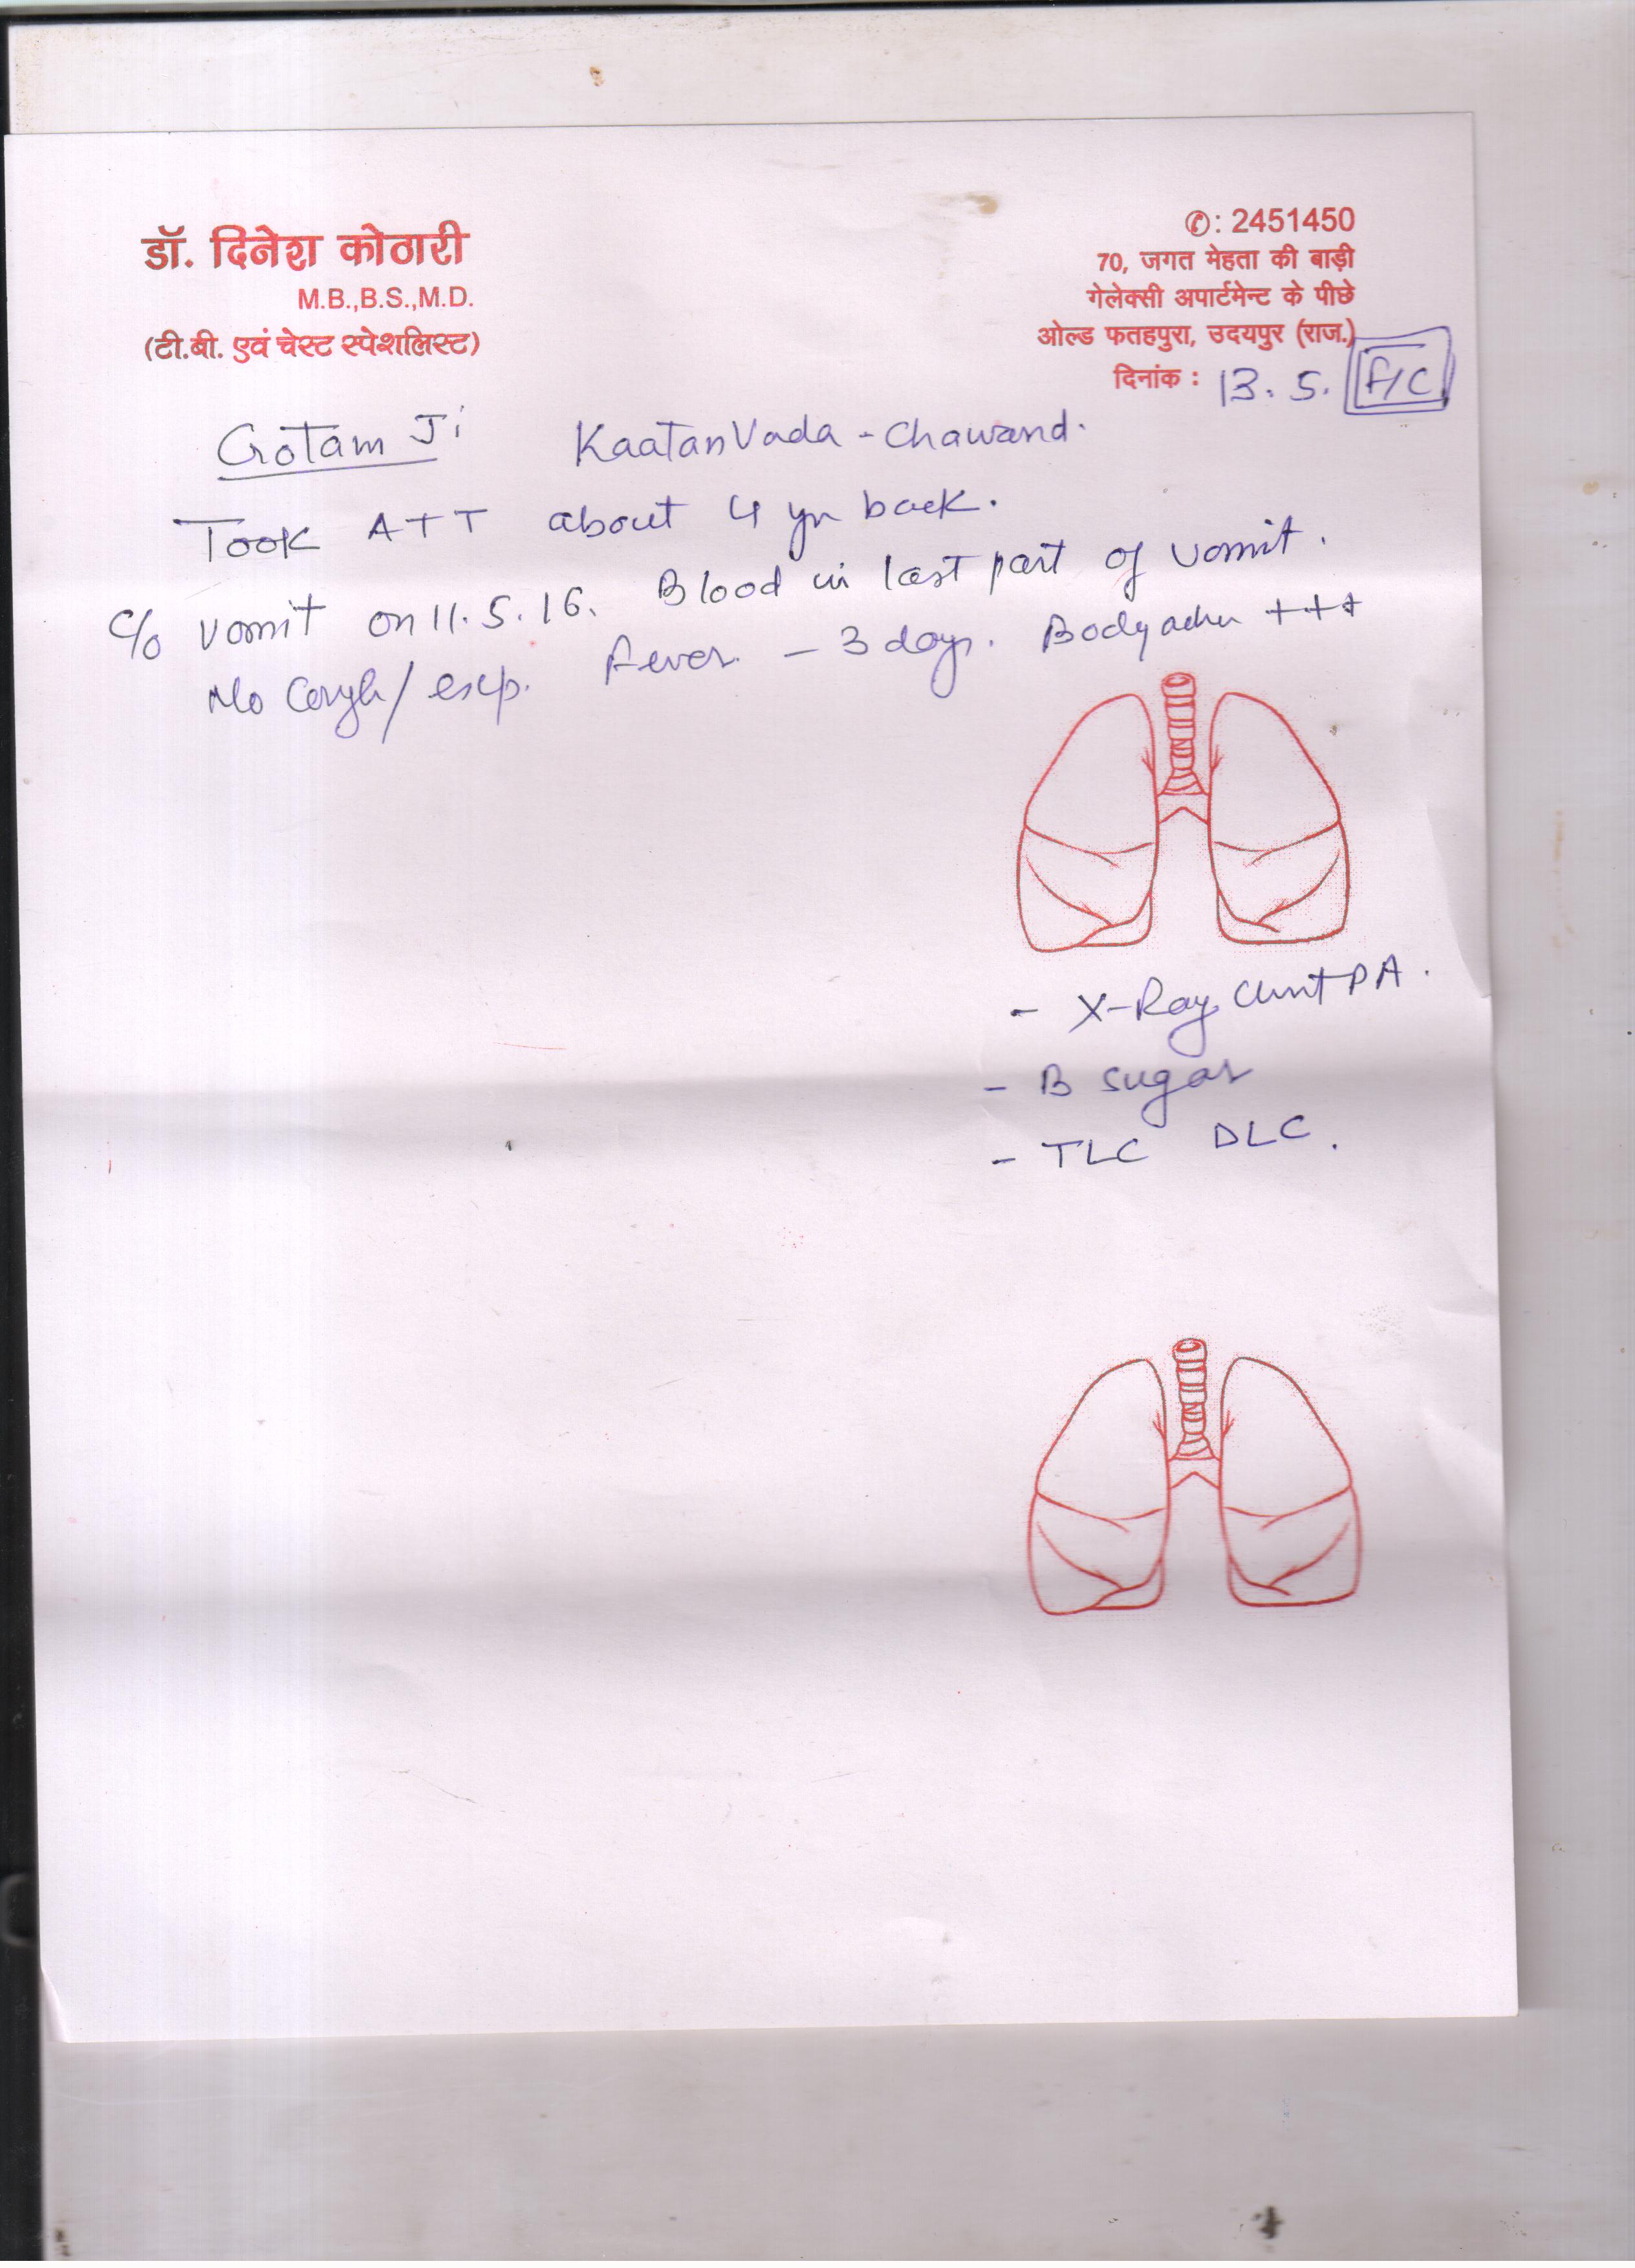 डॉ. दिनेश कोठारी
M.B.,B.S.,M.D.
(टी.बी. एवं चेस्ट स्पेशलिस्ट)
✆: 2451450
70, जगत मेहता की बाड़ी
गेलेक्सी अपार्टमेन्ट के पीछे
ओल्ड फतहपुरा, उदयपुर (राज.)
दिनांक : 13. 5. F/C
Gotam Ji KaatanVada - Chawand.
Took ATT about 4 yr back.
C/o vomit on 11. 5. 16. Blood in last part of vomit.
No Cough/exp. Fever - 3 days. Bodyache +++
- X-Ray Chest PA.
- B sugar
- TLC DLC.